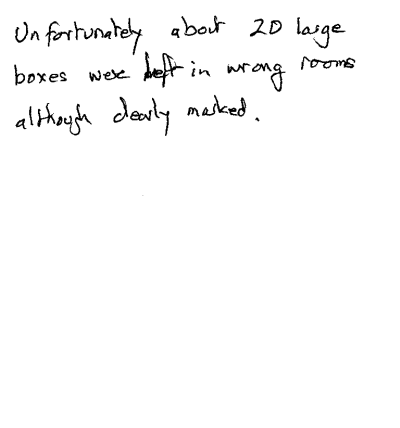 Unfortunately about 20 large
boxes were left in wrong rooms
although clearly marked.